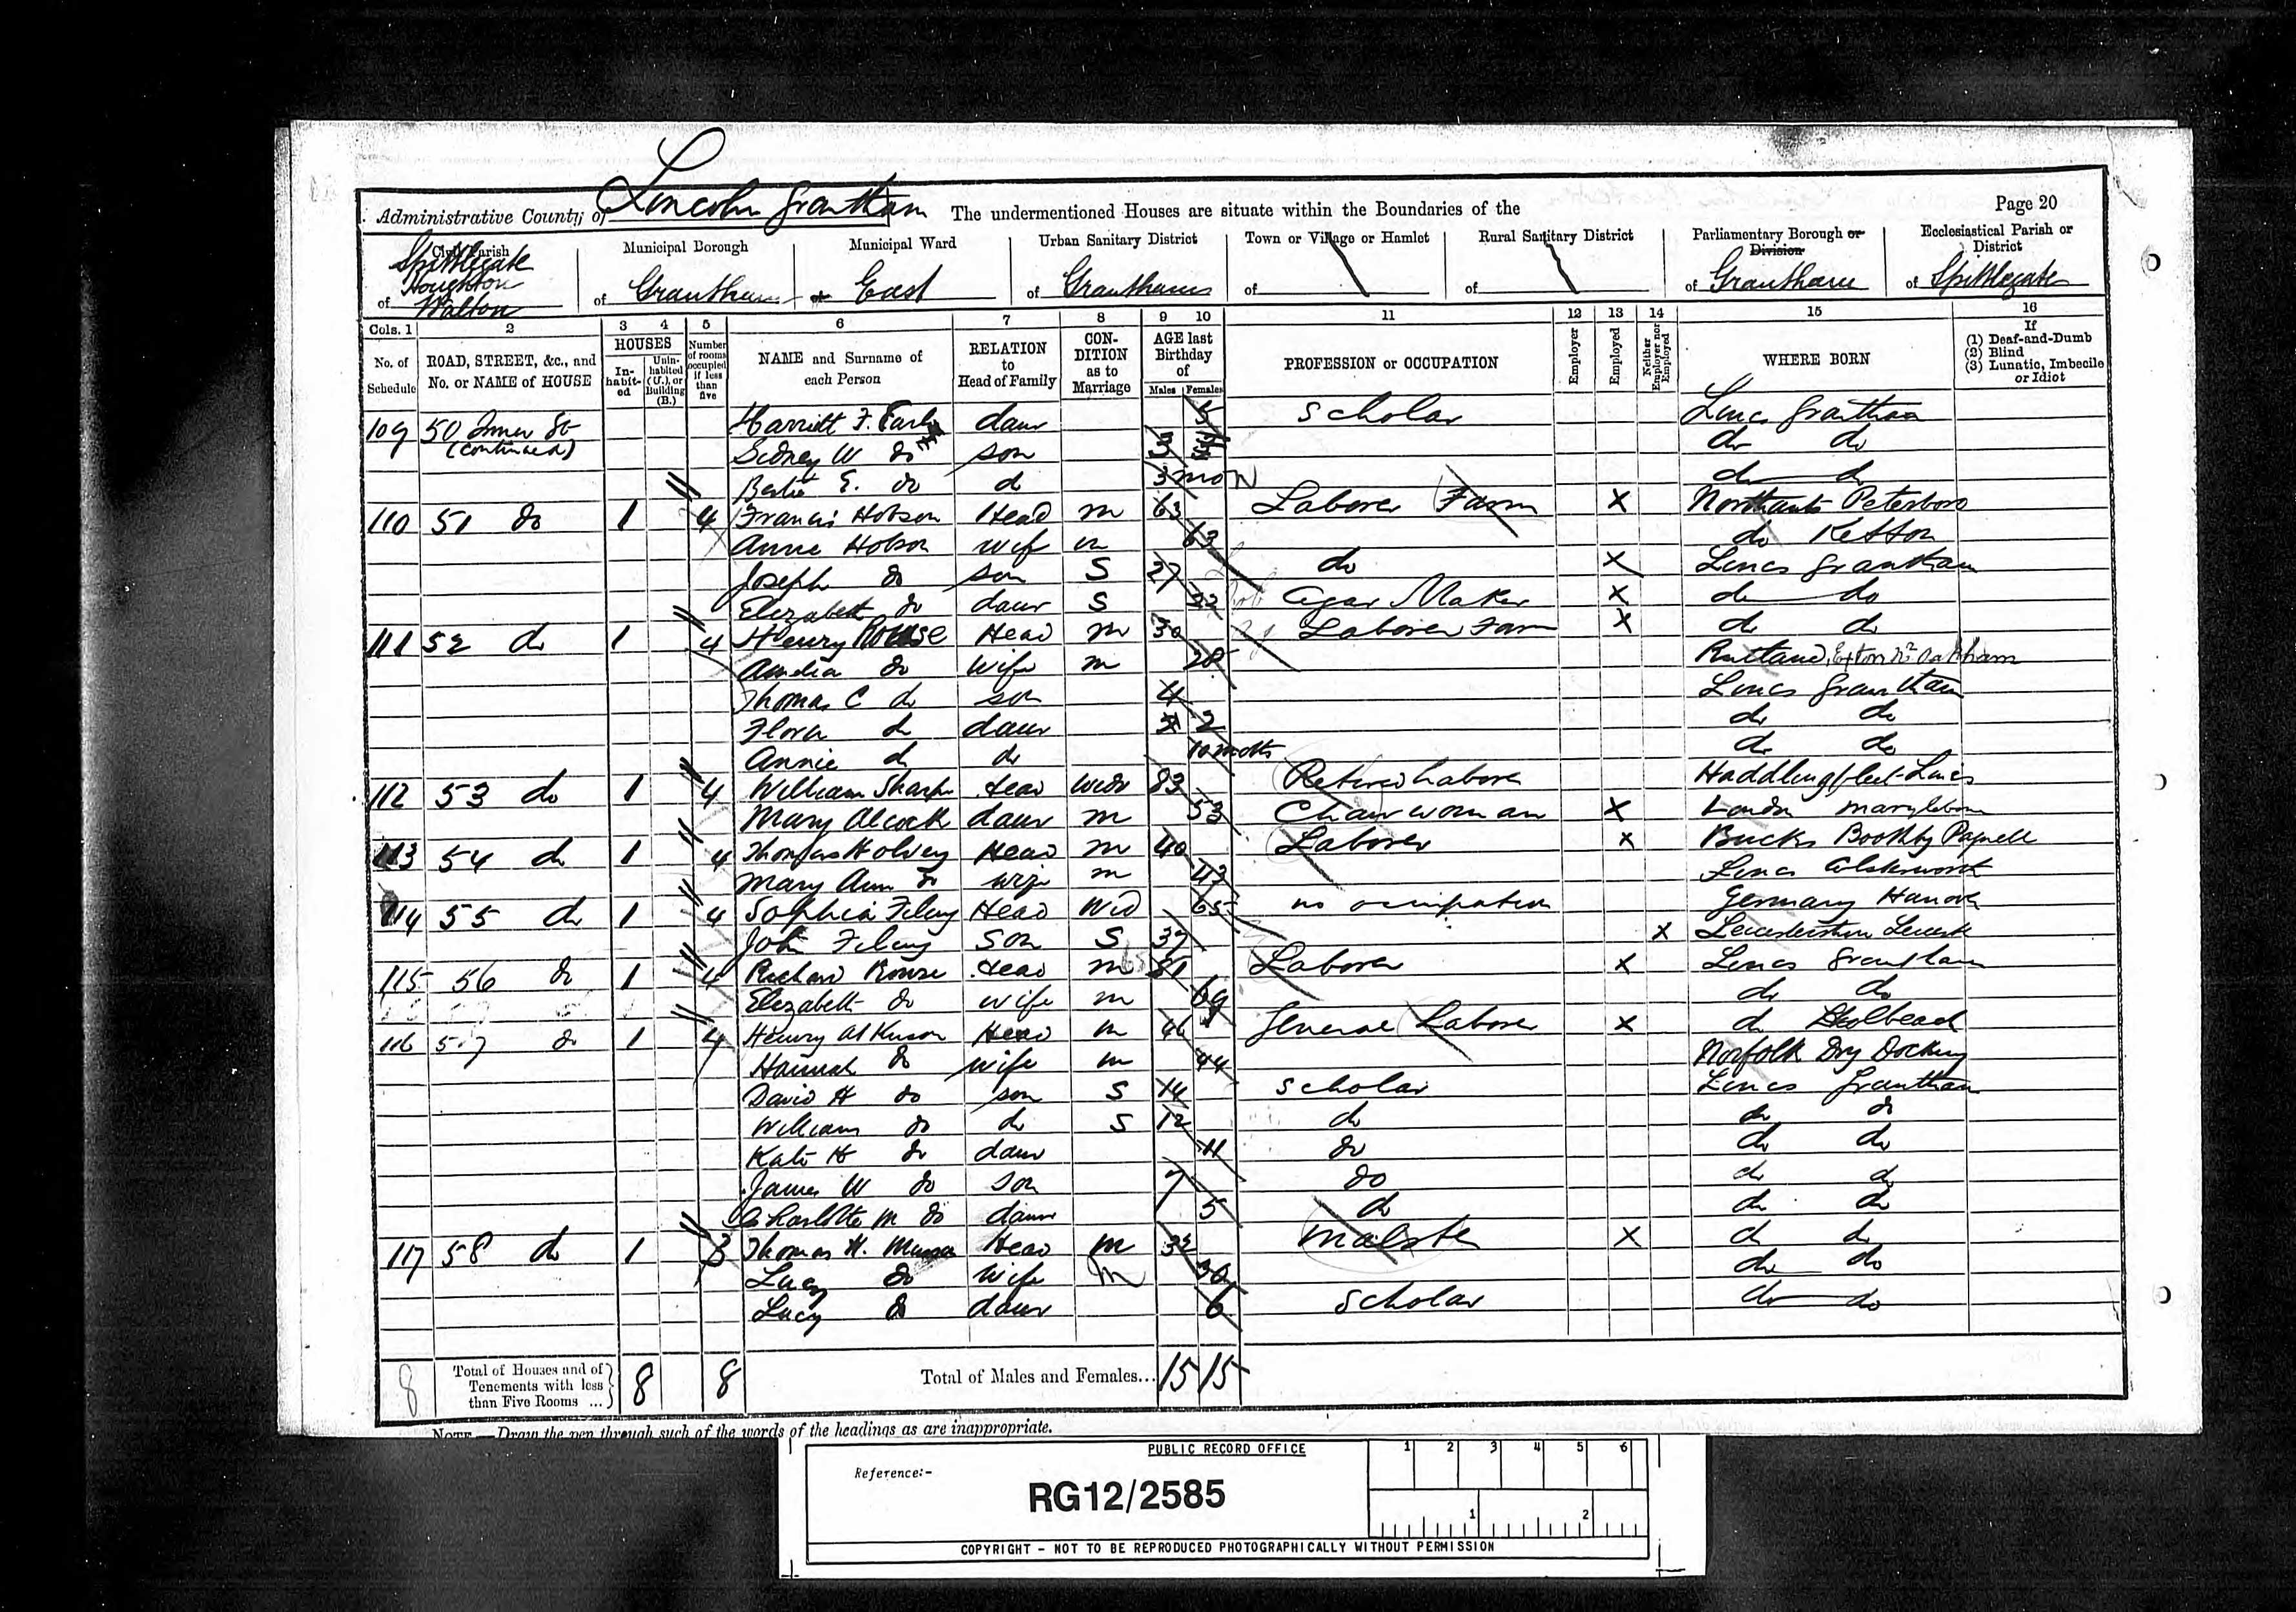 Administrative County of Lincoln Grantham The undermentioned Houses are situate within the Boundaries of the Page 20
Civil Parish Municipal Borough Municipal Ward Urban Sanitary District Town or Village or Hamlet Rural Sanitary District Parliamentary Borough or Division Ecclesiastical Parish or District
of Spittlegate Houghton Walton of Grantham of East of Grantham of of of Grantham of Spittlegate
Cols. 1 2 3 4 5 6 7 8 9 10 11 12 13 14 15 16
No. of Schedule ROAD, STREET, &c., and No. or NAME of HOUSE HOUSES In-habit-ed Unin-habited (U.), or Building (B.) Number of rooms occupied if less than five NAME and Surname of each Person RELATION to Head of Family CON-DITION as to Marriage AGE last Birthday of Males Females PROFESSION or OCCUPATION Employer Employed Neither Employer nor Employed WHERE BORN If (1) Deaf-and-Dumb (2) Blind (3) Lunatic, Imbecile or Idiot
109 50 St (continued) Harriett F. daur 5 Scholar Lincs Grantham
Sidney W do son 3 do do
E. do do 3 mo do do
110 51 do 1 4 Francis Hobson Head m 63 Laborer Farm X Northants Peterboro
Annie Hobson wife m 63 do Ketton
Joseph do son S 27 do X Lincs Grantham
Elizabeth do daur S 22 Cigar Maker X do do
111 52 do 1 4 Henry Rouse Head m 30 Laborer Farm X do do
Amelia do wife m 28 Rutland, Exton Nr Oakham
Thomas C do son 4 Lincs Grantham
Flora do daur 2 do do
Annie do do 10 moths do do
112 53 do 1 4 William Sharpe Head Widr 83 Retired Laborer Lincs
Mary Alcock daur m 53 Chairwoman X London Marylebone
113 54 do 1 4 Thomas Head m 40 Laborer X Bucks Boothby Pagnell
Mary Ann do wife m 47 Lincs Colsterworth
114 55 do 1 4 Sophia Head Wid 65 no occupation Germany Hanover
John son S 37 X Leicestershire
115 56 do 1 4 Richard Rouse Head m Laborer X Lincs Grantham
Elizabeth do wife m 69 do do
116 57 do 1 4 Henry Atkinson Head m 46 General Laborer X do Holbeach
Hannah do wife m 44 Norfolk Dry Docking
David H do son S 14 Scholar Lincs Grantham
William do do S 12 do do do
Kate H do daur 11 do do do
James W do son 7 do do do
Charlotte M do daur 5 do do do
117 58 do 1 3 Thomas H. Head m 32 Malster X do do
Lucy do wife m 30 do do
Lucy do daur 6 Scholar do do
8 Total of Houses and of Tenements with less than Five Rooms ... 8 8 Total of Males and Females... 15 15
NOTE.—Draw the pen through such of the words of the headings as are inappropriate.
PUBLIC RECORD OFFICE
Reference:-
RG12/2585
1 2 3 4 5 6
1 2
COPYRIGHT - NOT TO BE REPRODUCED PHOTOGRAPHICALLY WITHOUT PERMISSION